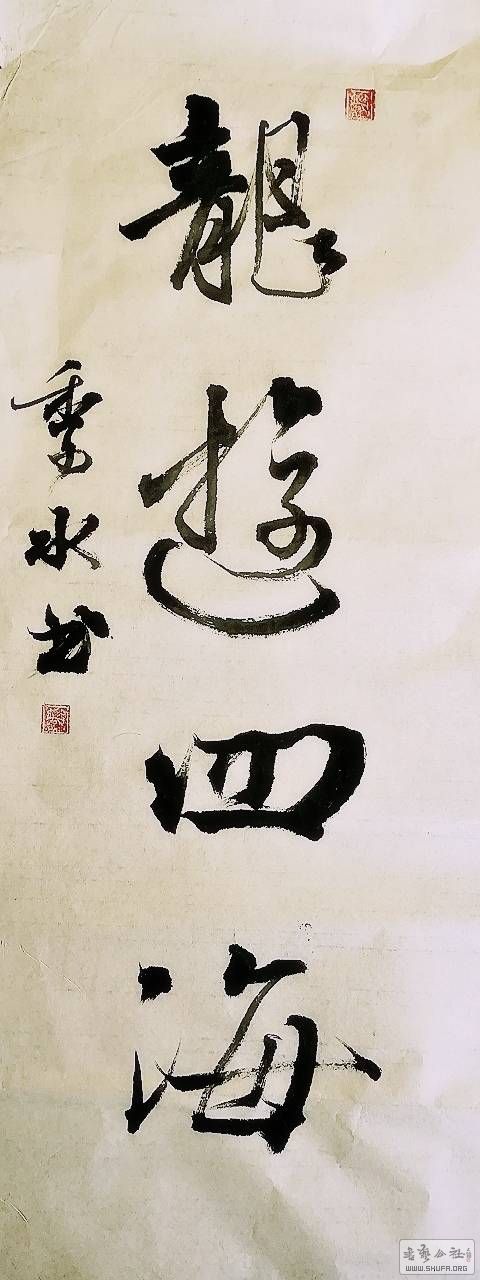 龍遊四海
季水书
书艺公社
WWW.SHUFA.ORG